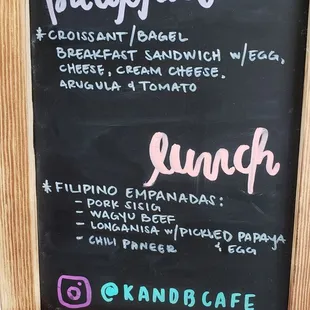 *CROISSANT/BAGEL
BREAKFAST SANDWICH W/EGG,
CHEESE, CREAM CHEESE,
ARUGULA & TOMATO
lunch
*FILIPINO EMPANADAS:
- PORK SISIG
- WAGYU BEEF
- LONGANISA W/PICKLED PAPAYA
& EGG
- CHILI PANEER
@KANDBCAFE